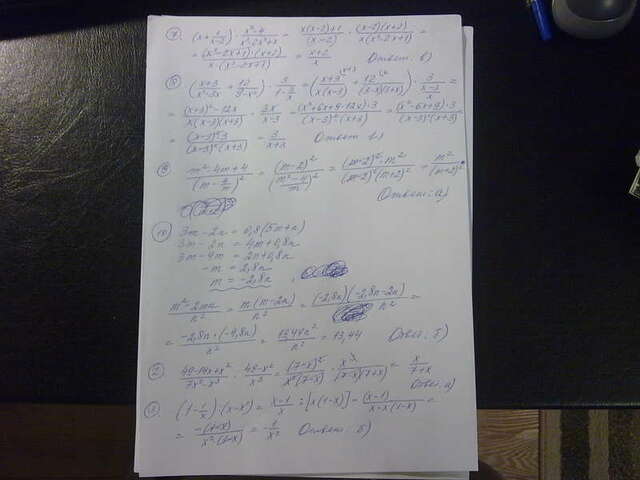 (x + 1/(x-2)) · (x²-4)/(x³-2x²+x) = (x(x-2)+1)/(x-2) · (x-2)(x+2)/(x(x²-2x+1)) =
= (x²-2x+1)·(x+2)/(x·(x²-2x+1)) = (x+2)/x Ответ: в)
((x+3)/(x²-3x) + 12/(9-x²)) · 3/(1-3/x) = ((x+3)/(x(x-3)) + 12/((3-x)(3+x))) · 3/((x-3)/x) =
= ((x+3)²-12x)/(x(x-3)(x+3)) · 3x/(x-3) = (x²+6x+9-12x)·3/((x-3)²(x+3)) = (x²-6x+9)·3/((x-3)²(x+3))
= (x-3)²·3/((x-3)²(x+3)) = 3/(x+3) Ответ:
(m²-4m+4)/(m-4/m)² = (m-2)²/((m²-4)/m)² = (m-2)²·m²/((m-2)²(m+2)²) = m²/(m+2)²
Ответ: а)
3m-2n = 0,8(5m+n)
3m-2n = 4m+0,8n
3m-4m = 2n+0,8n
-m = 2,8n
m = -2,8n
(m²-2mn)/n² = m(m-2n)/n² = (-2,8n)(-2,8n-2n)/n² =
= -2,8n·(-4,8n)/n² = 13,44n²/n² = 13,44 Ответ: б)
(49-14x+x²)/(7x²-x³) : (49-x²)/x³ = (7-x)²/(x²(7-x)) · x³/((7-x)(7+x)) = x/(7+x)
Ответ: а)
(1-1/x) : (x-x²) = (x-1)/x : [x(1-x)] = (x-1)/(x·x(1-x)) =
= -(1-x)/(x²·(1-x)) = -1/x² Ответ: б)